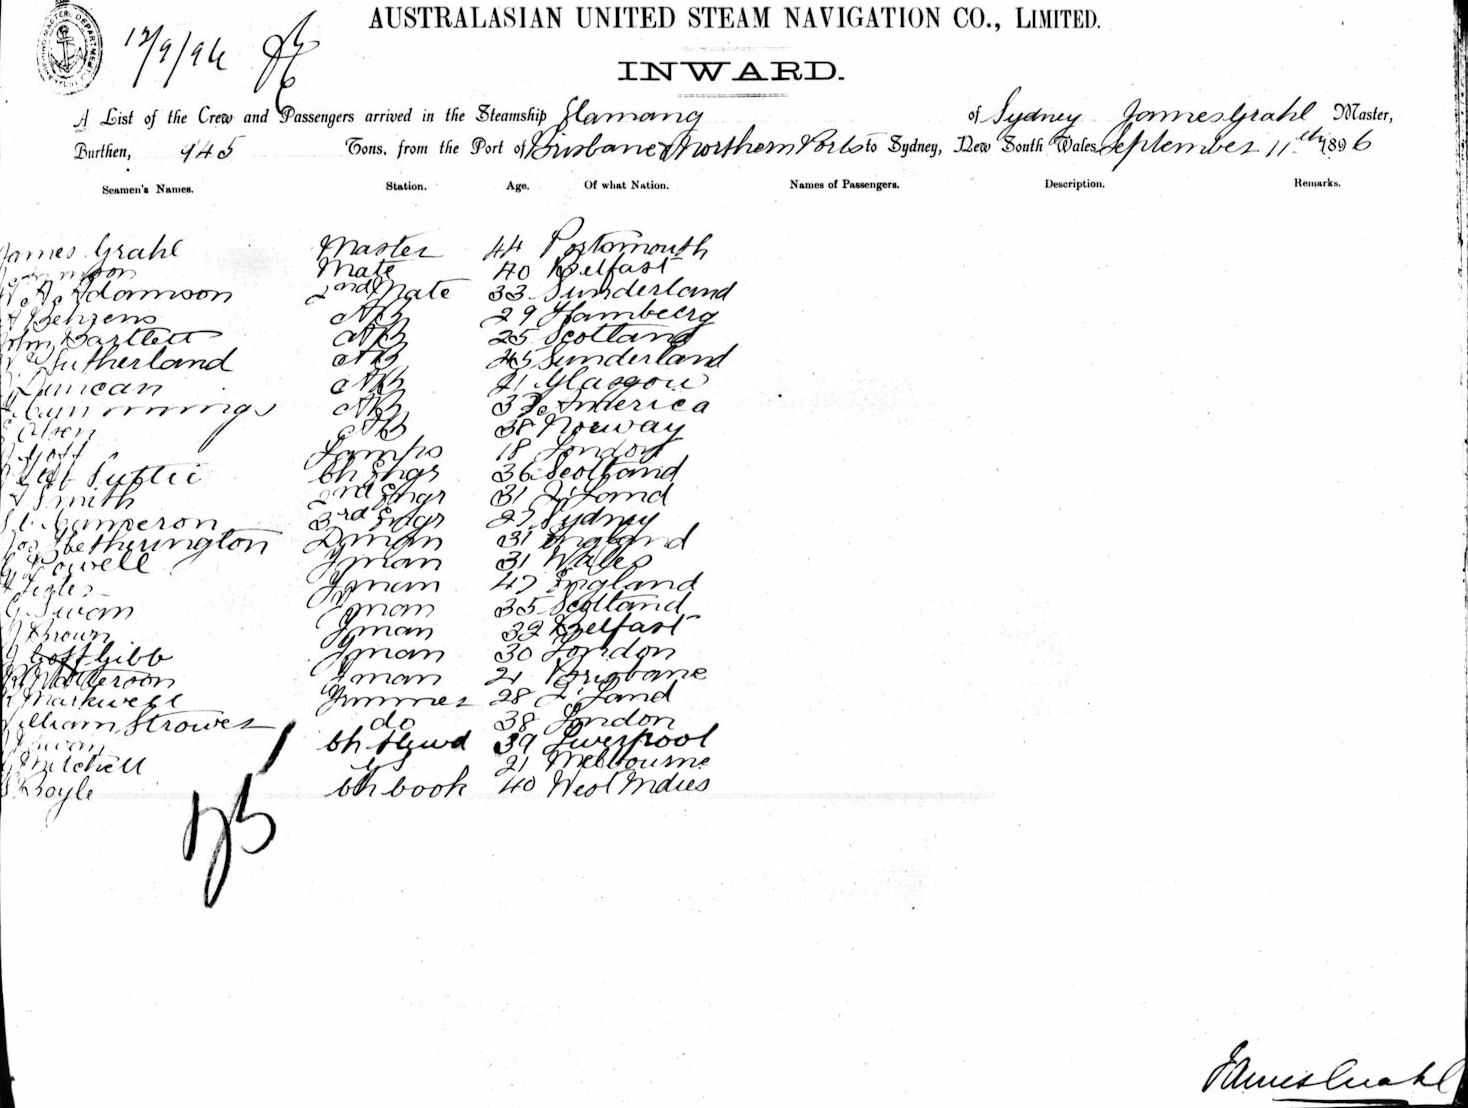 12/9/96
AUSTRALASIAN UNITED STEAM NAVIGATION CO., LIMITED.
INWARD.
A List of the Crew and Passengers arrived in the Steamship of Sydney James Grahl Master,
Burthen, 945 Tons, from the Port of Brisbane & Northern Ports to Sydney, New South Wales September 11th 1896
Seamen's Names. Station. Age. Of what Nation. Names of Passengers. Description. Remarks.
James Grahl Master 44 Portsmouth
Mate 40 Belfast
A. Adamson 2nd Mate 33 Sunderland
Behrens AB 29 Hamburg
John Bartlett AB 25 Scotland
Sutherland AB 45 Sunderland
Duncan AB 21 Glasgow
Cummings AB America
Olsen AB 38 Norway
Lamps 18 London
Suttie Ch Engr 36 Scotland
Smith 2nd Engr 31
Cameron 3rd Engr Sydney
Jos Hetherington 31 England
Powell Fman 31 Wales
Fman 47 England
G. Swan Fman 35 Scotland
Brown Fman Belfast
Gibb Fman 30 London
Fman 21 Brisbane
Markwell Trimmer 28
William Strower do 38 London
Ch Stewd 39 Liverpool
Mitchell 21 Melbourne
Boyle Ch Cook 40 West Indies
James Grahl